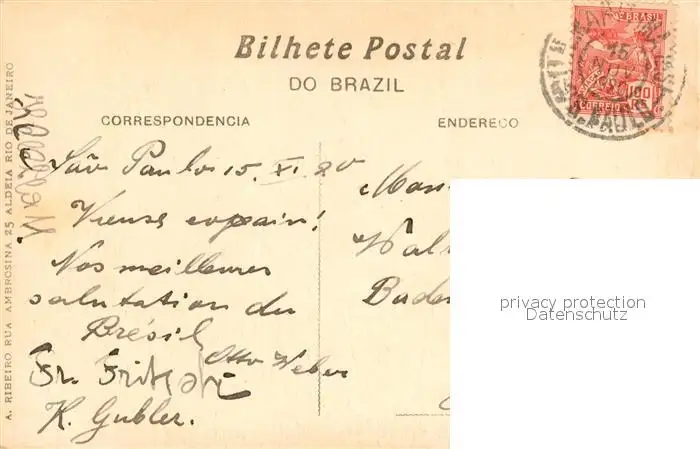 Bilhete Postal
DO BRAZIL
CORRESPONDENCIA
ENDEREÇO
BRASIL
CORREIO
100
S. PAULO
A. RIBEIRO RUA AMBROSINA 25 ALDEIA RIO DE JANEIRO
São Paulo 15. XI. 20
Vieux copain!
Nos meilleures
salutation du
Brésil
Otto Weber
Fr.
K. Gubler.
privacy protection
Datenschutz